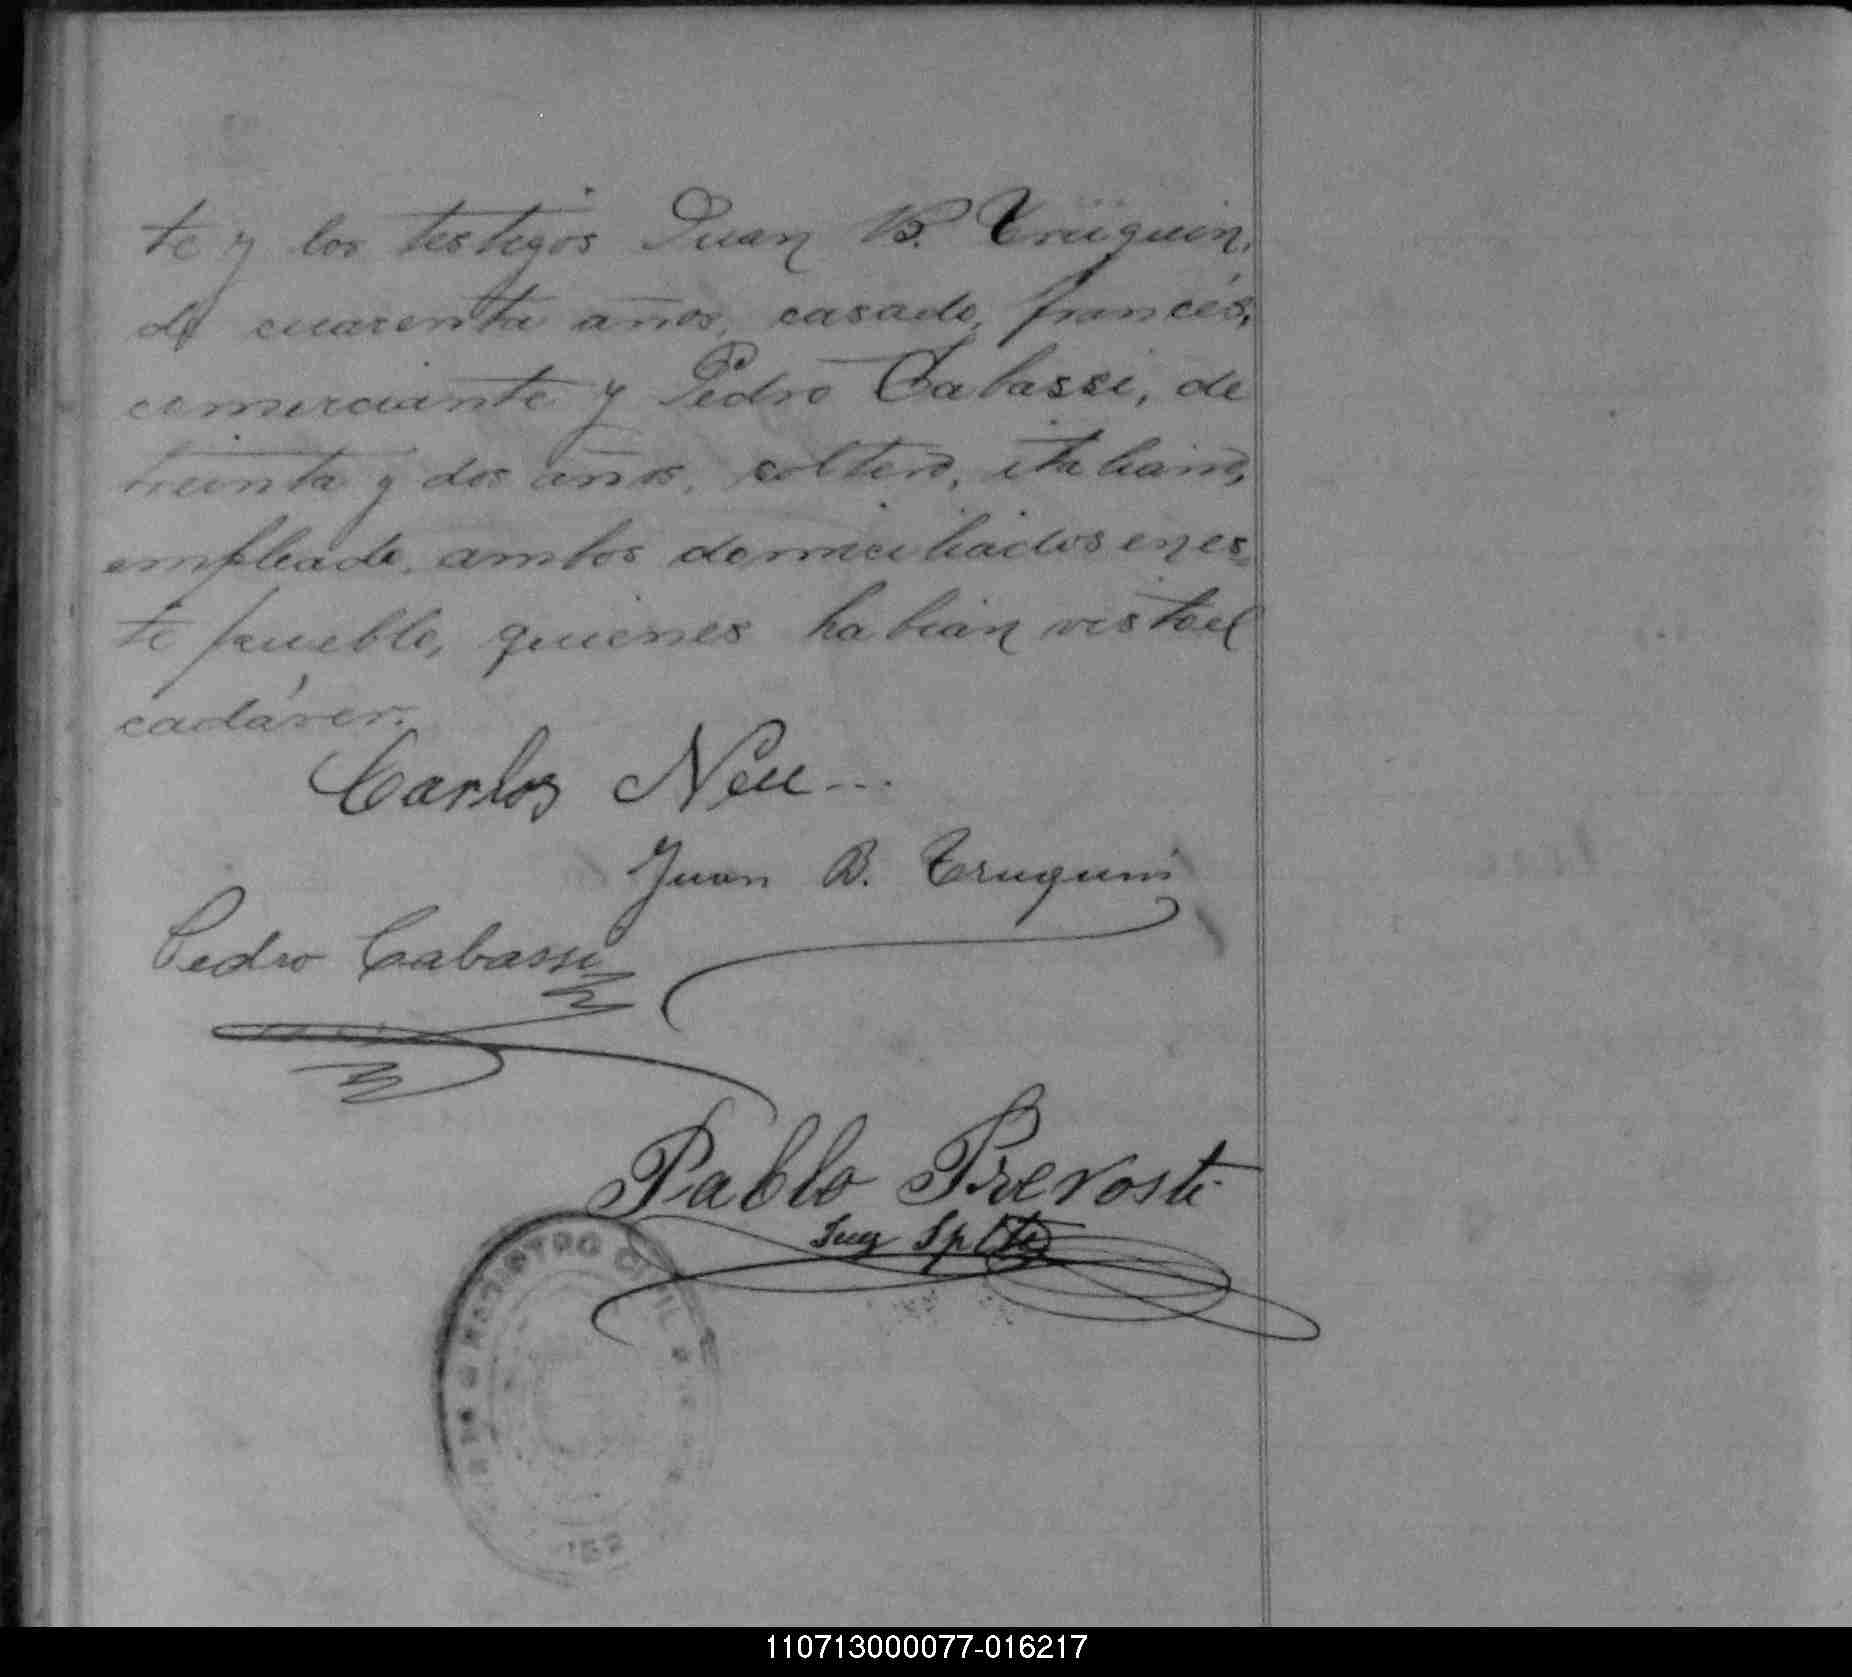 te y los testigos Juan B. Truquin,
de cuarenta años, casado, francés,
comerciante y Pedro Cabassi, de
treinta y dos años, soltero, italiano,
empleado, ambos domiciliados en es-
te pueblo, quienes habian visto el
cadáver.
Carlos Neu
Juan B. Truquin
Pedro Cabassi
Pablo Prevosti
REGISTRO CIVIL
110713000077-016217